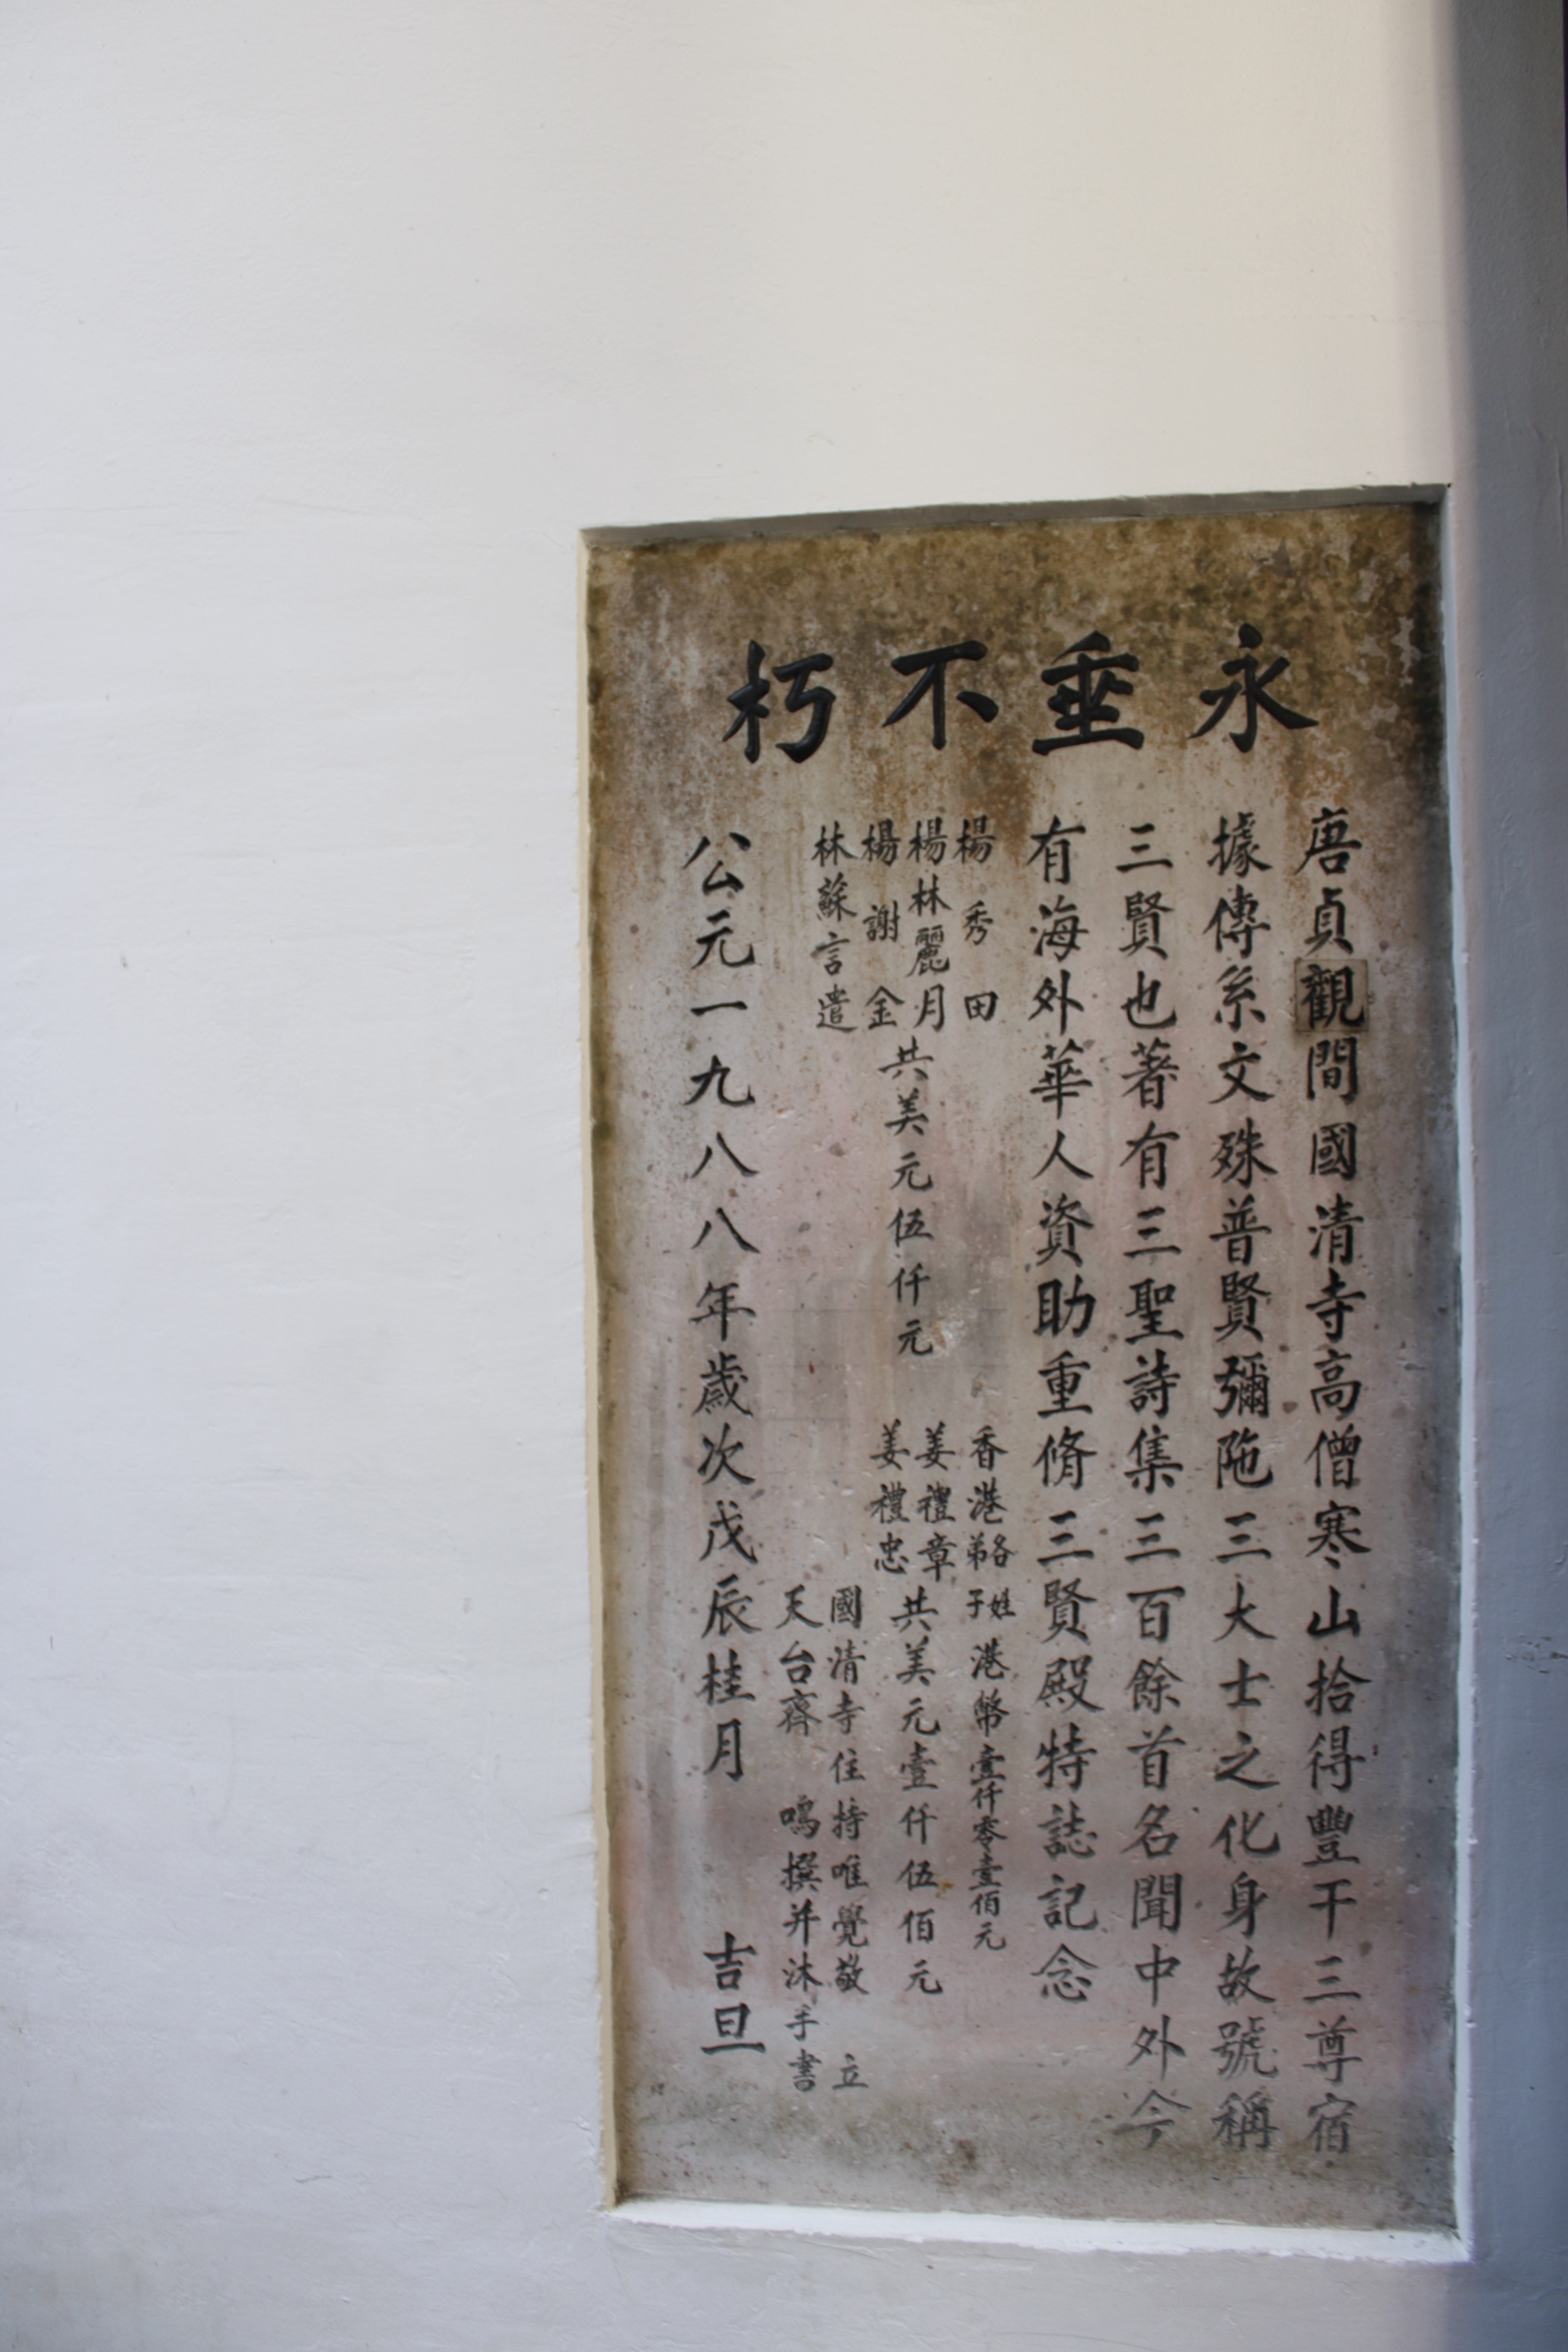 永垂不朽
唐貞觀間國清寺高僧寒山拾得豐干三尊宿
據傳系文殊普賢彌陁三大士之化身故號稱
三賢也著有三聖詩集三百餘首名聞中外今
有海外華人資助重脩三賢殿特誌記念
楊秀田
楊林麗月
楊謝金
林蘇言遣
共美元伍仟元
香港各姓弟子港幣壹仟零壹佰元
姜禮章
姜禮忠
共美元壹仟伍佰元
國清寺住持唯覺敬立
天台齊鳴撰并沐手書
公元一九八八年歲次戊辰桂月吉旦